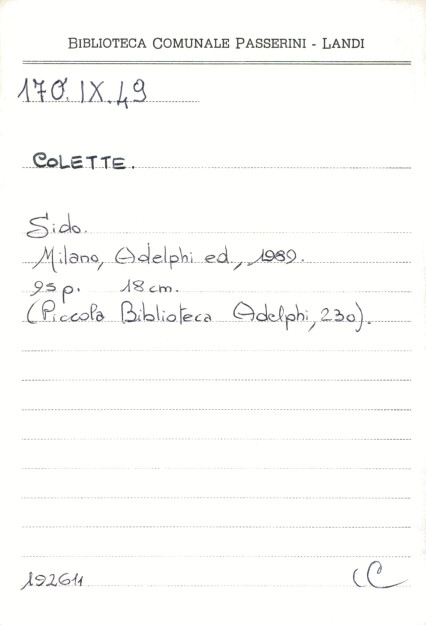 BIBLIOTECA COMUNALE PASSERINI - LANDI
170.IX.49
COLETTE.
Sido.
Milano, Adelphi ed., 1989.
95 p. 18 cm.
(Piccola Biblioteca Adelphi, 230).
192611